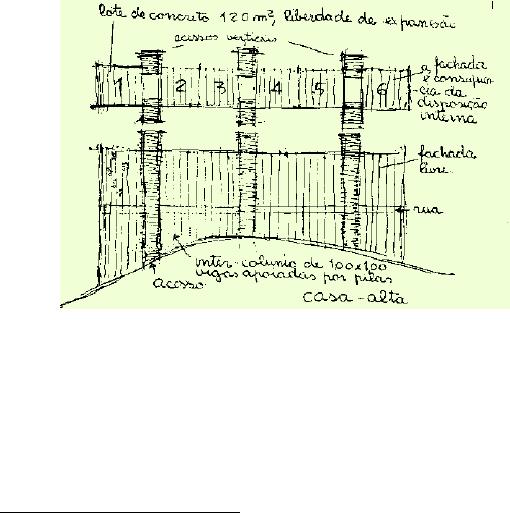 lote de concreto 120m², liberdade de expansão
acessos verticais
a fachada
é consequên
cia da
disposição
interna
1 2 3 4 5 6
fachada
livre
rua
inter-colunio de 100x100
vigas apoiadas por pilas
acesso
casa-alta